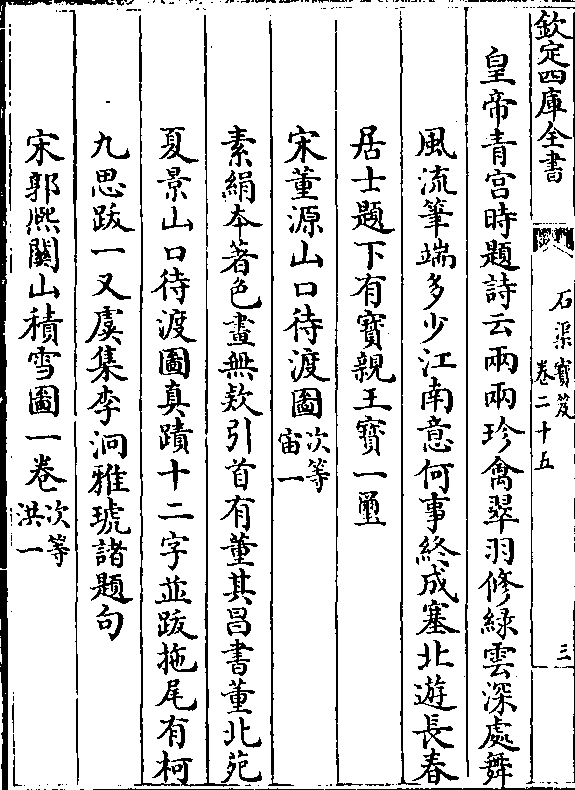 欽定四庫全書
石渠寶笈
卷二十五
三
皇帝青宫時題詩云兩兩珍禽翠羽修緑雲深處舞
風流筆端多少江南意何事終成塞北遊長春
居士題下有寳親王寳一璽
宋董源山口待渡圖次等
宙一
素絹本著色畫無欵引首有董其昌書董北苑
夏景山口待渡圖真蹟十二字並跋拖尾有柯
九思跋一又虞集李泂雅琥諸題句
宋郭熈關山積雪圖一卷次等
洪一